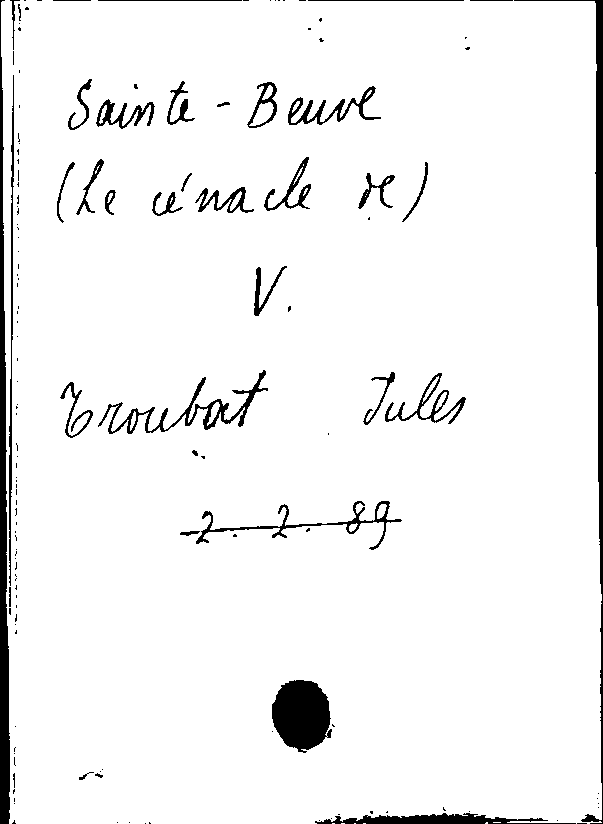 Sainte-Beuve
(Le cénacle de)
V.
Troubat Jules
2. 2. 89